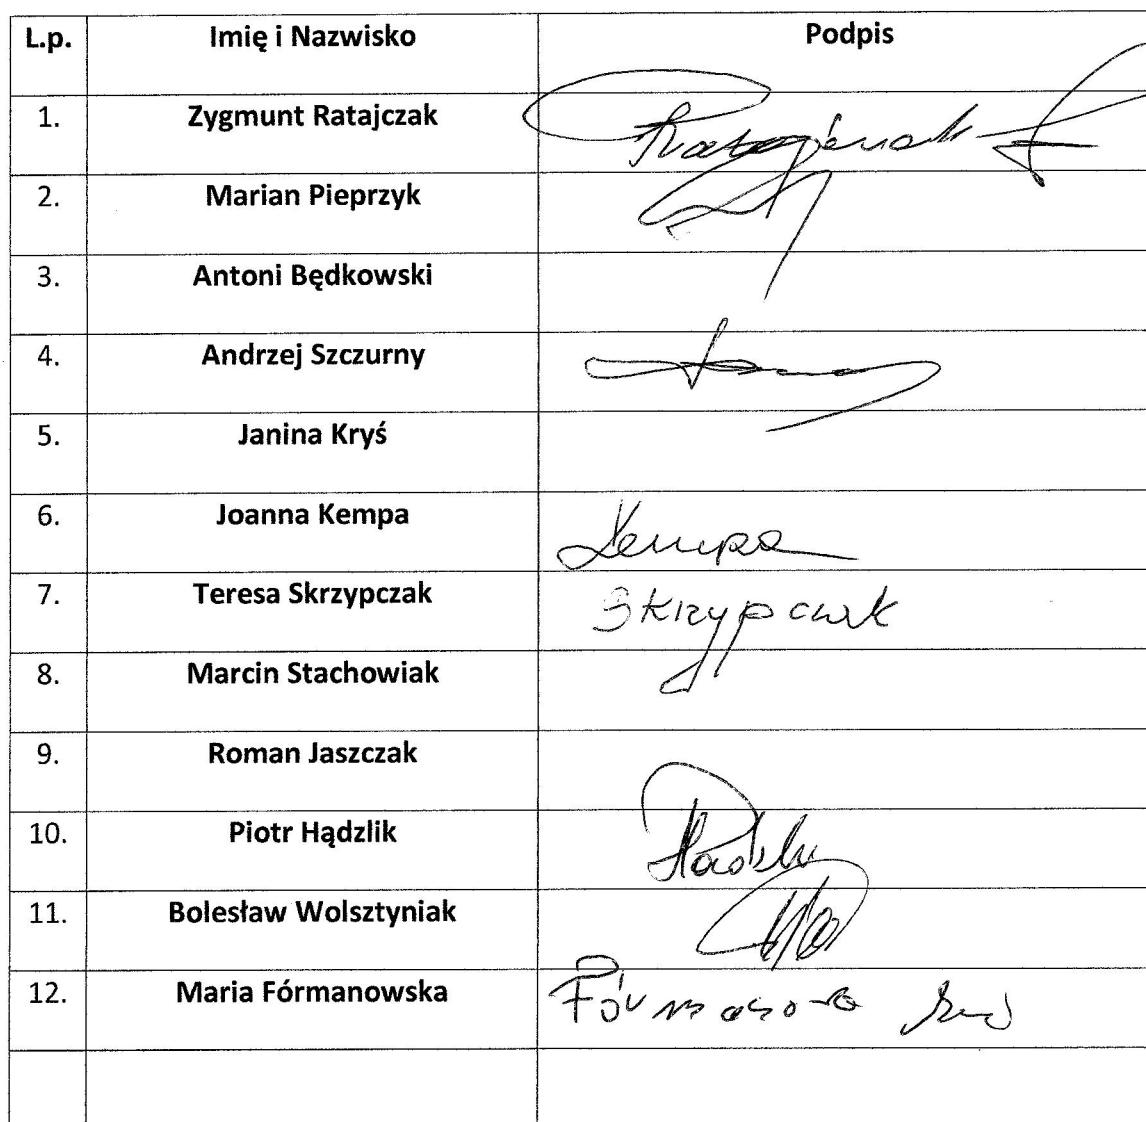 L.p. Imię i Nazwisko Podpis
1. Zygmunt Ratajczak
2. Marian Pieprzyk
3. Antoni Będkowski
4. Andrzej Szczurny
5. Janina Kryś
6. Joanna Kempa Kempa
7. Teresa Skrzypczak Skrzypczak
8. Marcin Stachowiak
9. Roman Jaszczak
10. Piotr Hądzlik
11. Bolesław Wolsztyniak
12. Maria Fórmanowska